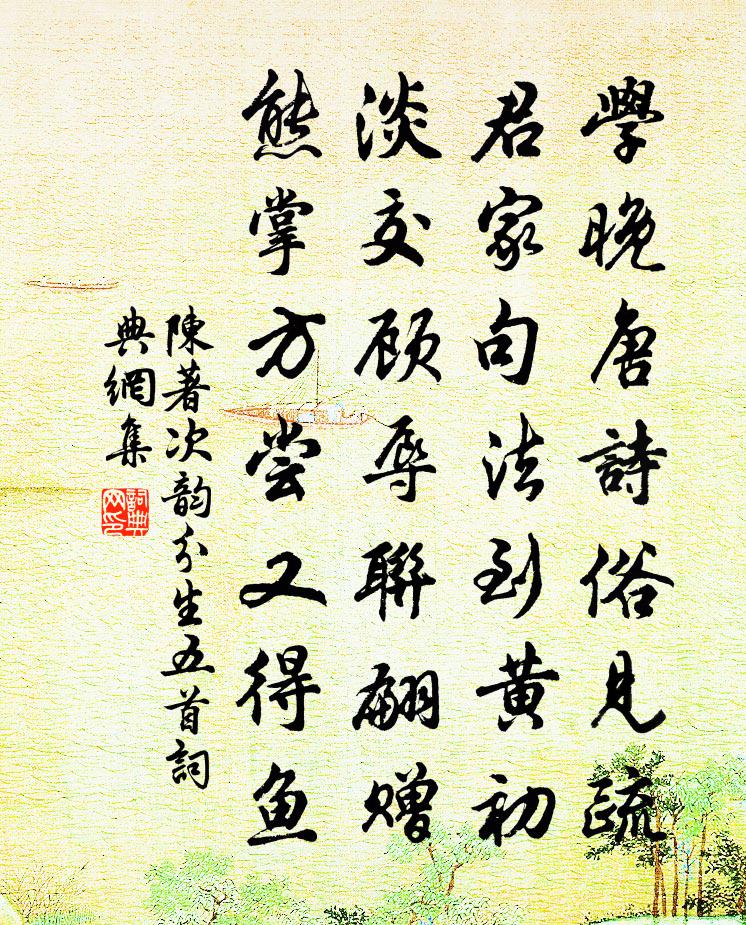 學晚唐詩俗見疏
君家句法到黃初
淡交顾辱聯翩贈
熊掌方尝又得鱼
陳著次韵分生五首詞
典網集
詞典
网印